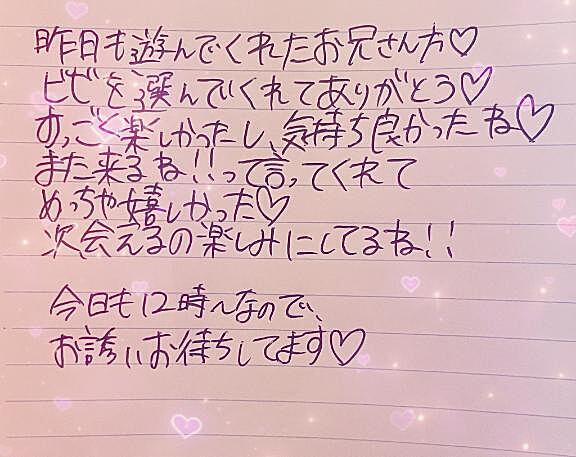 昨日も遊んでくれたお兄さん方♡
ビビを選んでくれてありがとう♡
すっごく楽しかったし、気持ち良かったね♡
また来るね!!って言ってくれて
めっちゃ嬉しかった♡
次会えるの楽しみにしてるね!!
今日も12時〜なので、
お誘いお待ちしてます♡